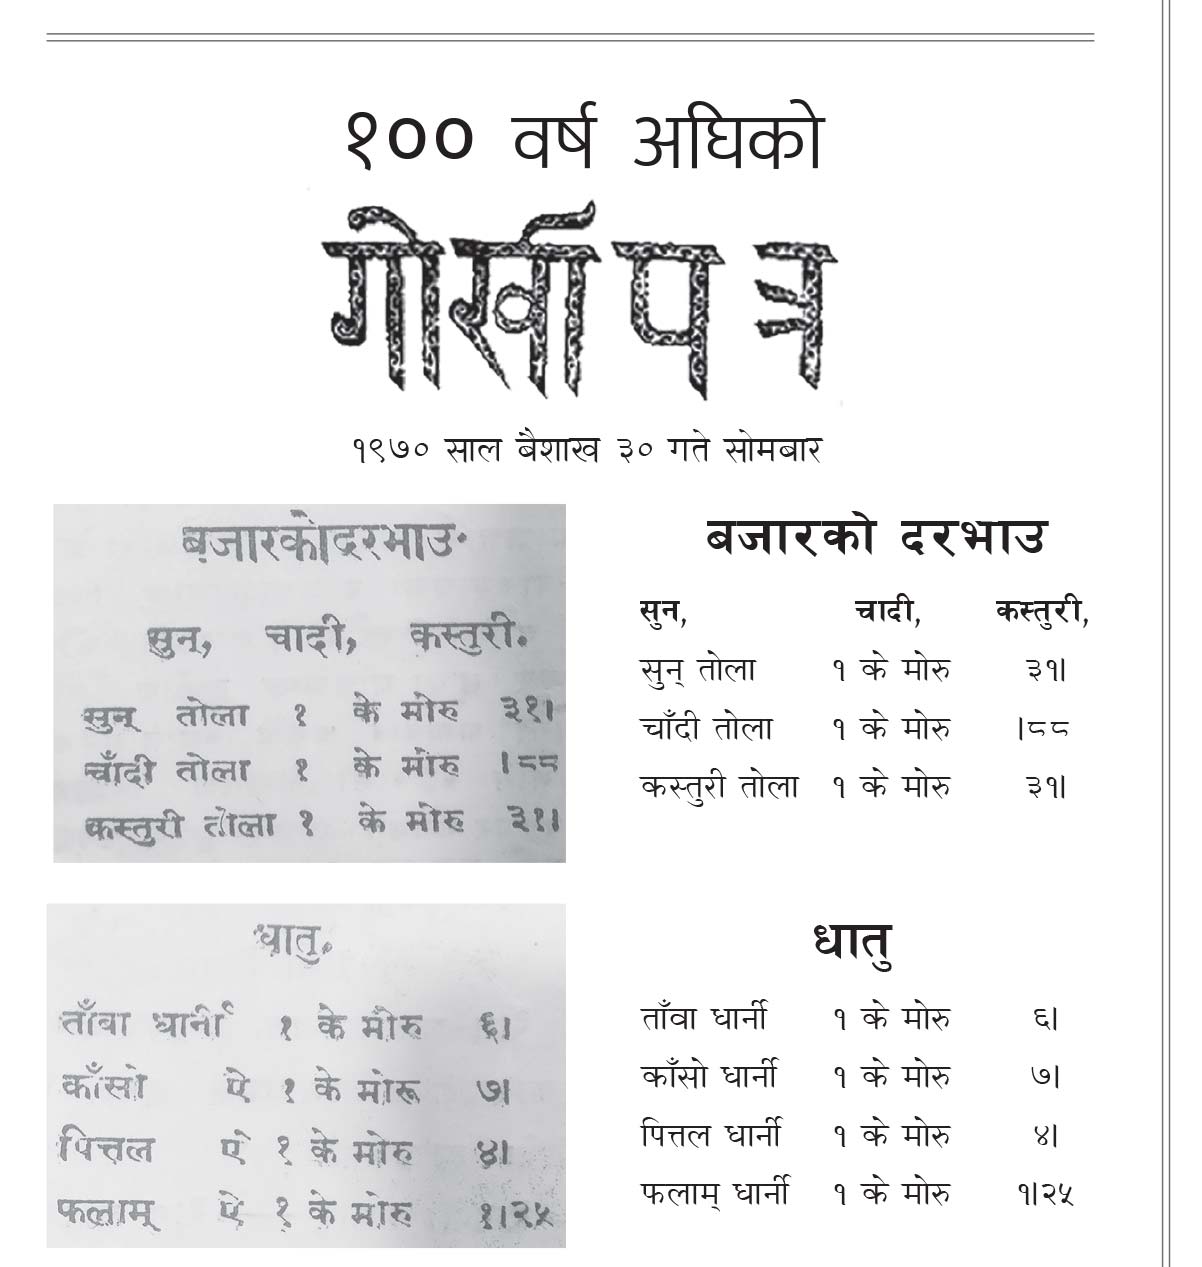 १०० वर्ष अघिको
गोर्खापत्र
१९७० साल बैशाख ३० गते सोमबार
बजारकोदरभाउ.
सुन्, चादी, कस्तुरी.
सुन् तोला १ के मोरु ३१।
चाँदी तोला १ के मोरु ।८८
कस्तुरी तोला १ के मोरु ३१।
बजारको दरभाउ
सुन, चादी, कस्तुरी,
सुन् तोला १ के मोरु ३१।
चाँदी तोला १ के मोरु ।८८
कस्तुरी तोला १ के मोरु ३१।
धातु.
ताँवा धार्नी १ के मोरु ६।
काँसो ऐ १ के मोरू ७।
पित्तल ऐ १ के मोरु ४।
फलाम् ऐ १ के मोरु १।२५
धातु
ताँवा धार्नी १ के मोरु ६।
काँसो धार्नी १ के मोरु ७।
पित्तल धार्नी १ के मोरु ४।
फलाम् धार्नी १ के मोरु १।२५